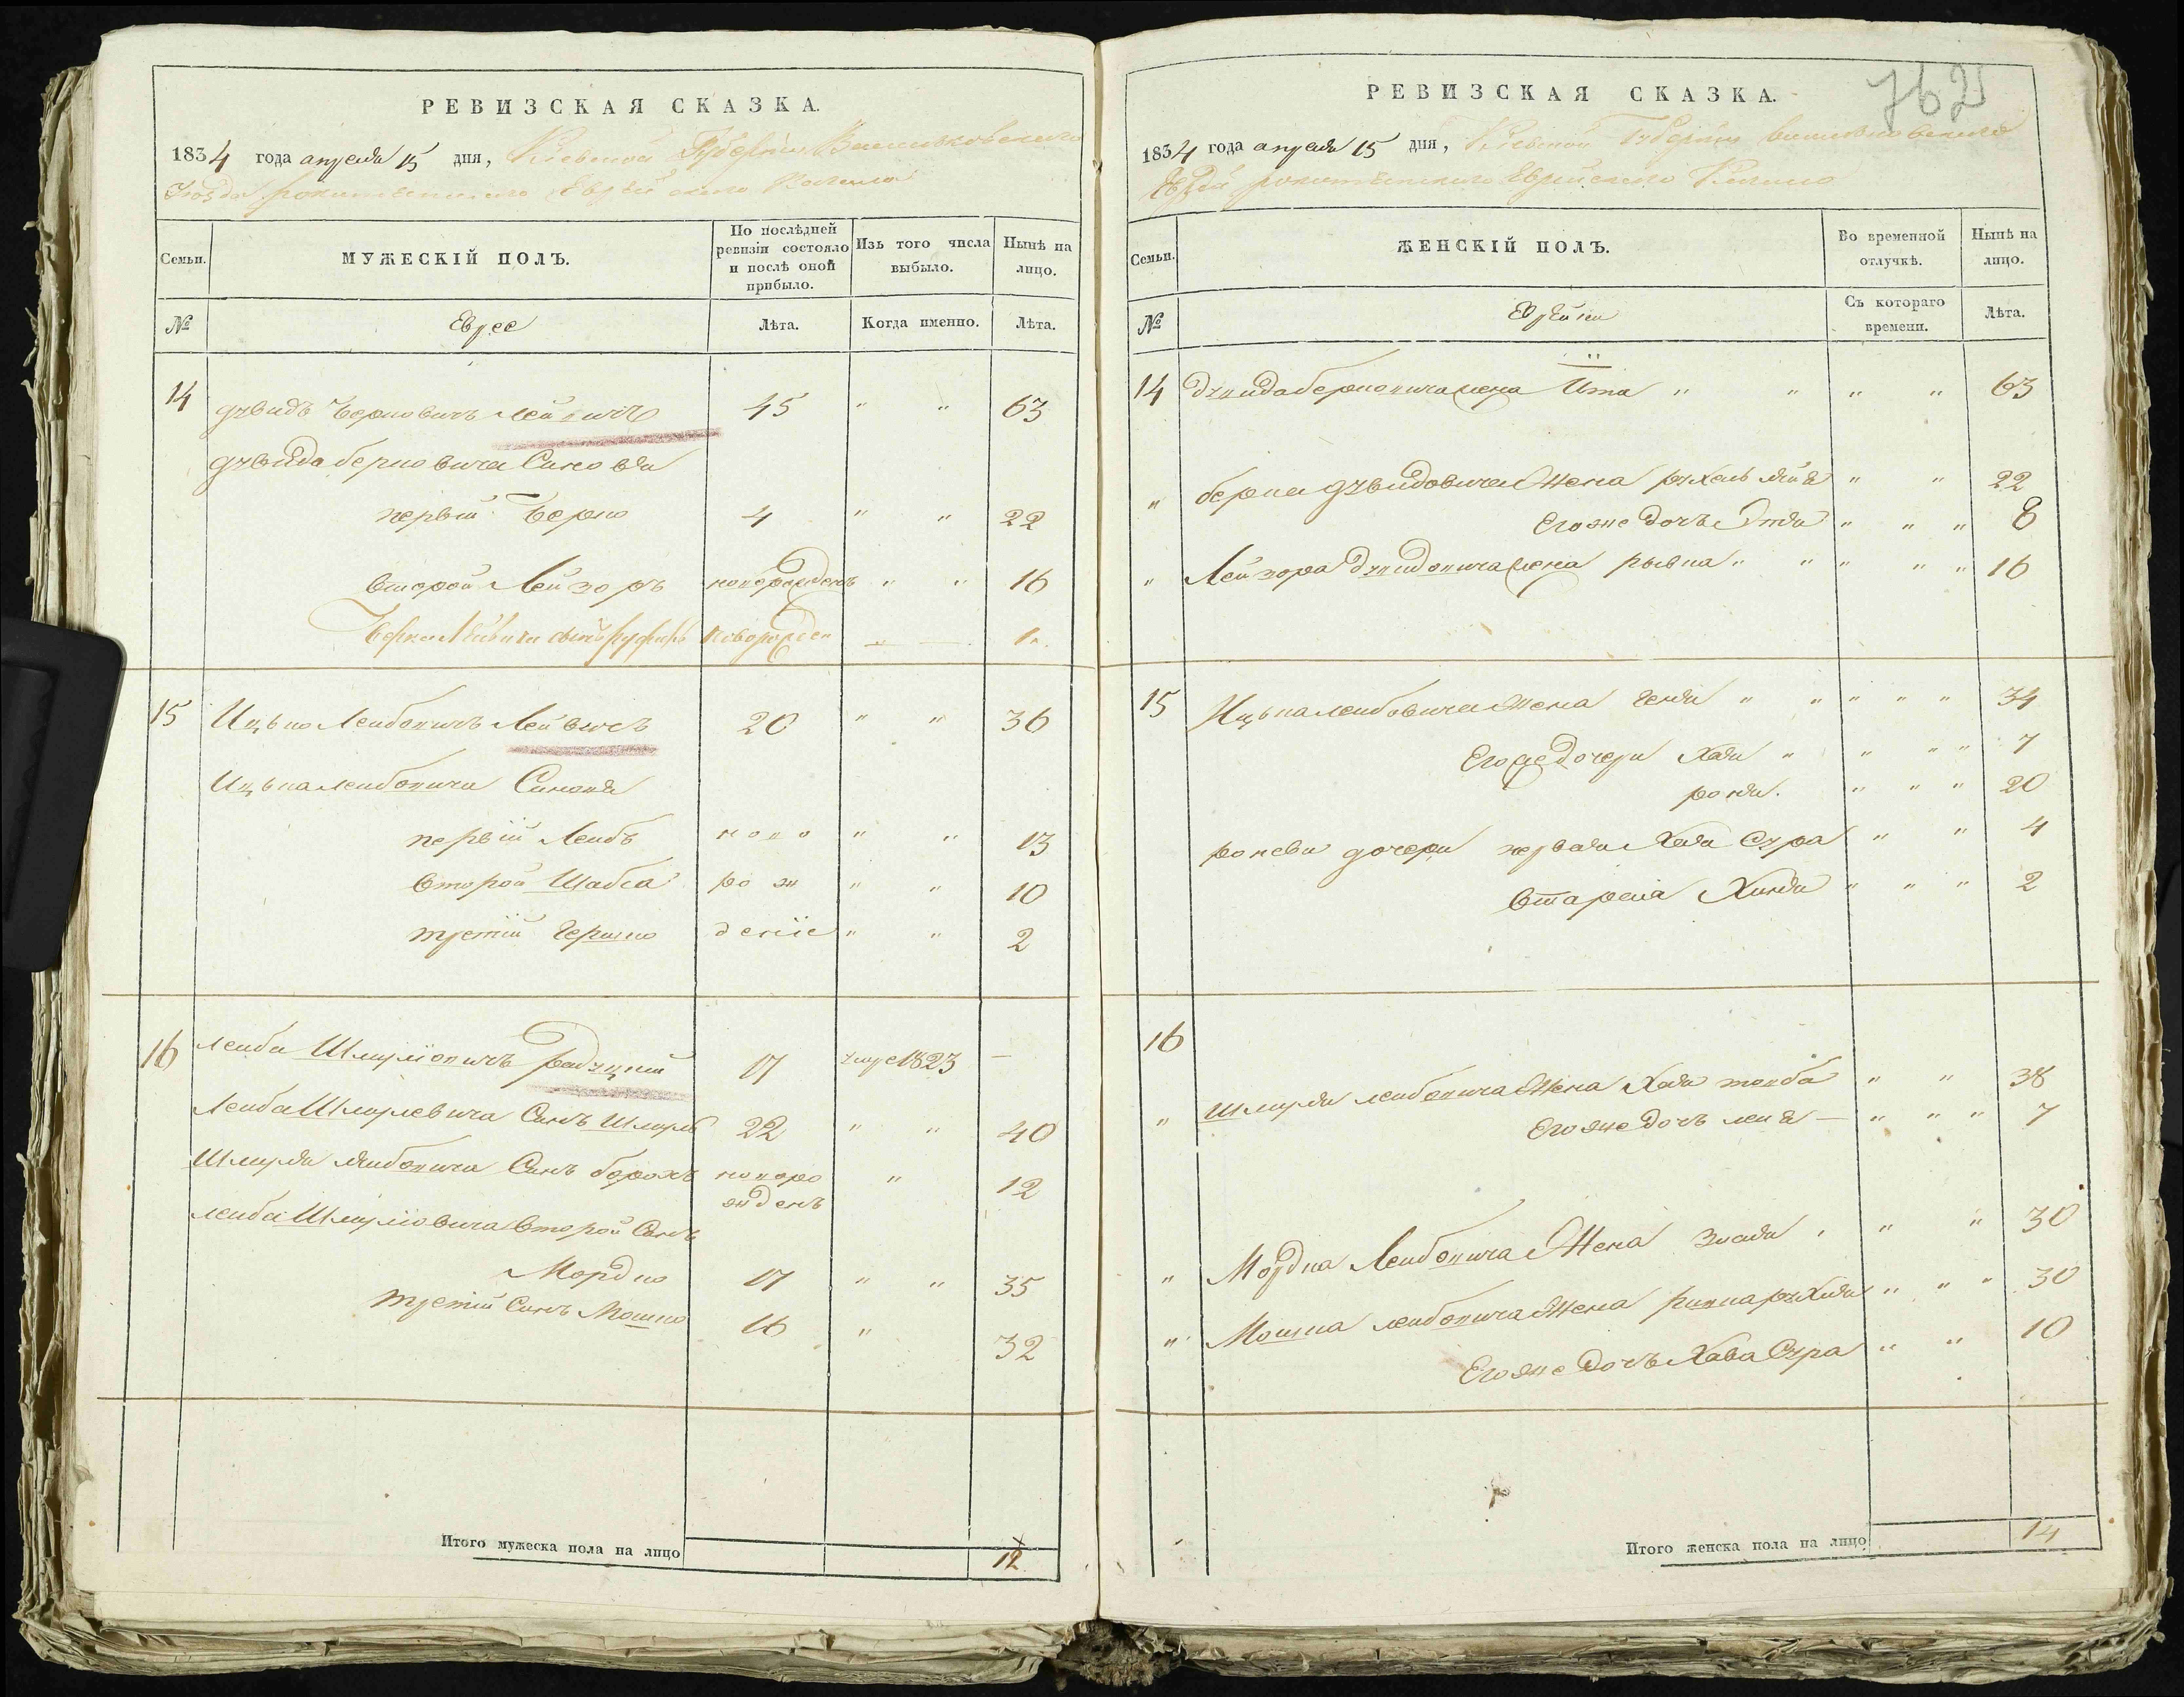 РЕВИЗСКАЯ СКАЗКА.
1834 года апреля 15 дня, Кіевской Губерніи Васильковского
Уезда рокитянского Еврейского Кагала
Семьи.
МУЖЕСКІЙ ПОЛЪ.
По послѣдней ревизіи состояло и послѣ оной прибыло.
Изъ того числа выбыло.
Нынѣ на лицо.
№
Еврее
Лѣта.
Когда именно.
Лѣта.
14 Дувидъ Берковичъ 45 " " 63
Дувида берковича Синовя
первій Берко 4 " " 22
второй Лейзоръ новорожденъ " " 16
Новорожден 1
15 Ицько Лейбовичъ 20 " " 36
Ицька лейбовича Синовя
первій Лейбъ ново " " 13
второй Шабса рож " " 10
третій Гершко деніе " " 2
16 Лейба Шмуліовичъ 17 умре 1823 —
Лейба Шмулевича Синъ Шмуль 22 " " 40
Шмуля лейбовича Синъ борохъ новоро
жденъ " 12
лейба Шмуліовича второй Синъ
Мордко 17 " " 35
третій Синъ Мошко 16 " 32
Итого мужеска пола на лицо 12
762
РЕВИЗСКАЯ СКАЗКА.
1834 года апреля 15 дня, Кіевской Губерніи Васильковского
Уезда рокитянского Еврейского Кагала
Семьи.
ЖЕНСКІЙ ПОЛЪ.
Во временной отлучкѣ.
Нынѣ на лицо.
№
Еврейки
Съ котораго времени.
Лѣта.
14 Дувида берковича жена Ита " " " " 63
" берка дувидовича Жена рухель " " 22
Егоже дочь Этя " " " 8
" Лейзора дувидовича жена рывка " " " " " 16
15 Ицька лейбовича Жена Геня " " " " " 34
Егоже дочери Хая " " " " 7
роня. " " " 20
роневи дочери первая Хая Сура " " 4
втарая Хиня " " " 2
16
" Шмуля лейбовича Жена Хая товба " " 38
Егоже дочь лея — " " " 7
" Мордка Лейбовича Жена Злата " " 30
" Мошка лейбовича Жена ривка рухля " " " 30
Егоже дочь Хава Сура " " 10
Итого женска пола на лицо 14